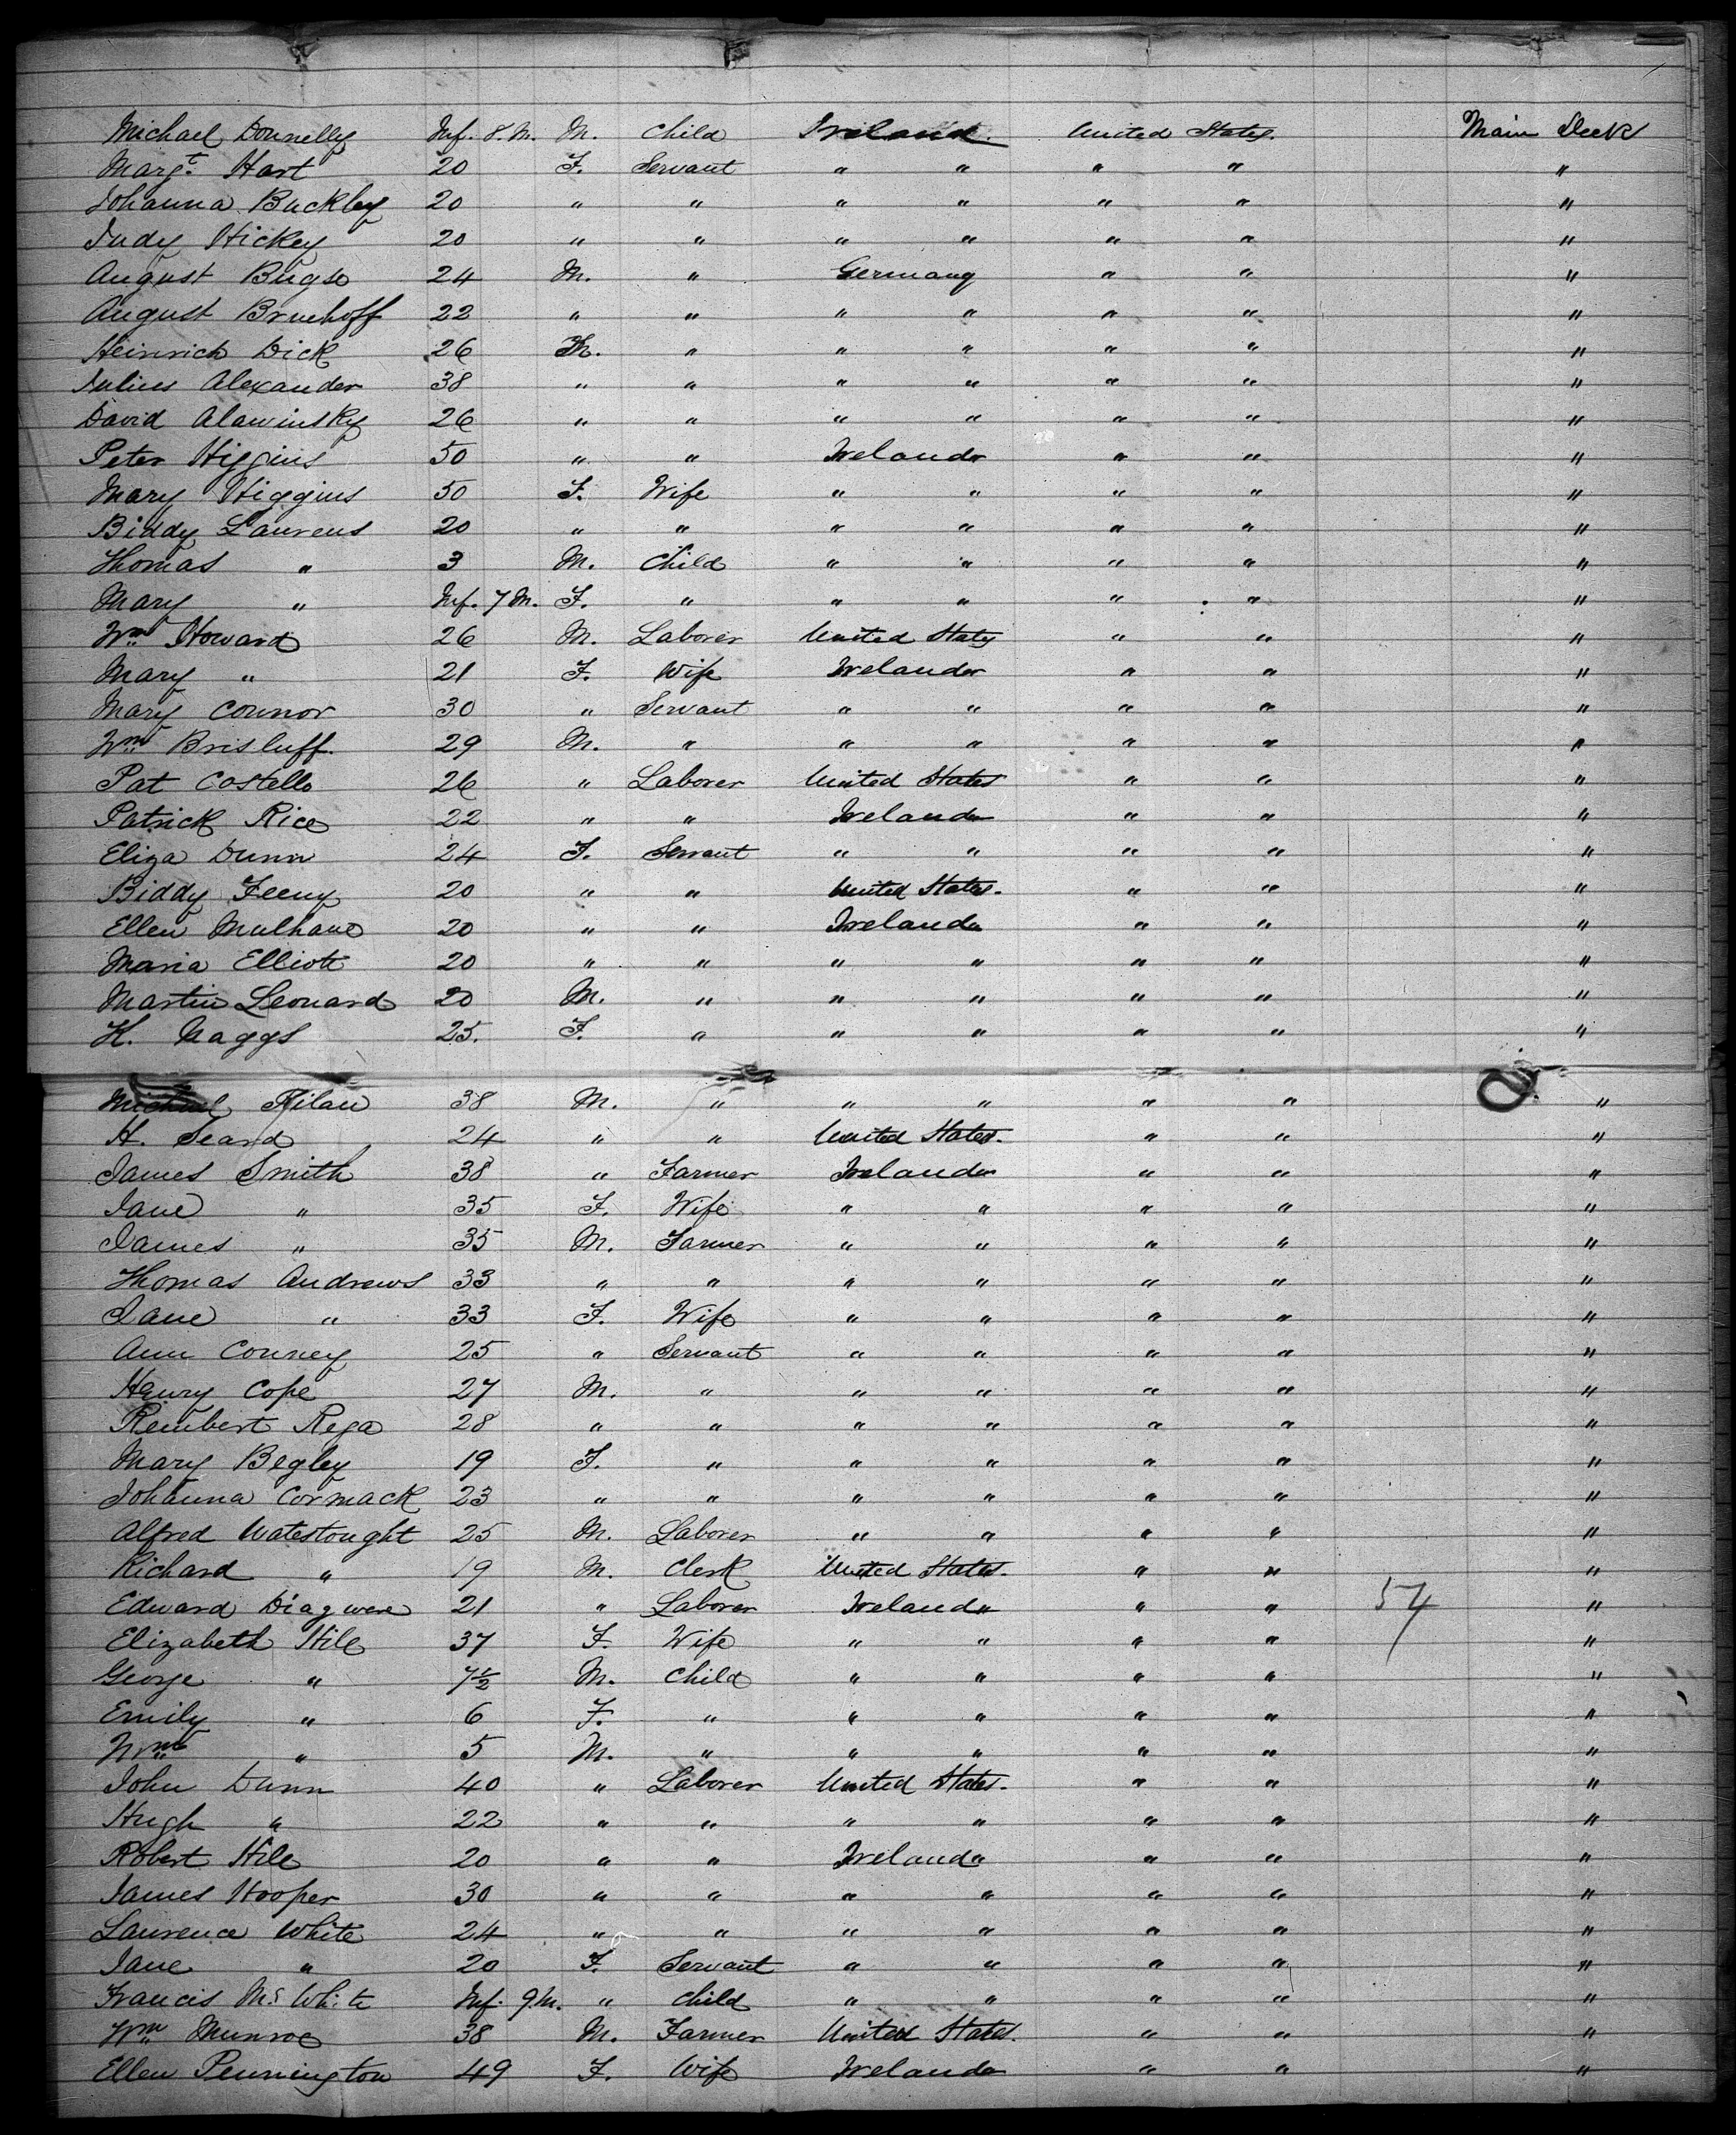 Michael Donnelly Inf. 8. M. M. Child Ireland. United States. Main Deck
Margt. Hart 20 F. Servant " " " " "
Johanna Buckley 20 " " " " " " "
Judy Hickey 20 " " " " " " "
August Bugse 24 M. " Germany " " "
August Bruehoff 22 " " " " " " "
Heinrich Dick 26 M. " " " " " "
Julius Alexander 38 " " " " " " "
David Alawinsky 26 " " " " " " "
Peter Higgins 50 " " Ireland " " "
Mary Higgins 50 F. Wife " " " " "
Biddy Laurens 20 " " " " " " "
Thomas " 3 M. Child " " " " "
Mary " Inf. 7 M. F. " " " " " "
Wm Howard 26 M. Laborer United States " " "
Mary " 21 F. Wife Ireland " " "
Mary Connor 30 " Servant " " " " "
Wm Brisluff. 29 M. " " " " " "
Pat Costello 26 " Laborer United States " " "
Patrick Rice 22 " " Ireland " " "
Eliza Dunn 24 F. Servant " " " " "
Biddy Feeny 20 " " United States. " " "
Ellen Mulhane 20 " " Ireland " " "
Maria Elliott 20 " " " " " " "
Martin Leonard 20 M. " " " " " "
K. Naggs 25. F. " " " " " "
Michael Kilan 38 M. " " " " " "
H. Seard 24 " " United States. " " "
James Smith 38 " Farmer Ireland " " "
Jane " 35 F. Wife " " " " "
James " 35 M. Farmer " " " " "
Thomas Andrews 33 " " " " " " "
Jane " 33 F. Wife " " " " "
Ann Conney 25 " Servant " " " " "
Henry Cope 27 M. " " " " " "
Rembert Rega 28 " " " " " " "
Mary Begley 19 F. " " " " " "
Johanna Cormack 23 " " " " " " "
Alfred Watestought 25 M. Laborer " " " " "
Richard " 19 M. Clerk United States. " " "
Edward Diagwere 21 " Laborer Ireland " " 57 "
Elizabeth Hile 37 F. Wife " " " " "
George " 7½ M. Child " " " " "
Emily " 6 F. " " " " " "
Wm " 5 M. " " " " " "
John Dunn 40 " Laborer United States. " " "
Hugh " 22 " " " " " " "
Robert Hile 20 " " Ireland " " "
James Hooper 30 " " " " " " "
Laurence White 24 " " " " " " "
Jane " 20 F. Servant " " " " "
Francis Ms White Inf. 9 M. " Child " " " " "
Wm Munroe 38 M. Farmer United States. " " "
Ellen Pennington 49 F. Wife Ireland " " "